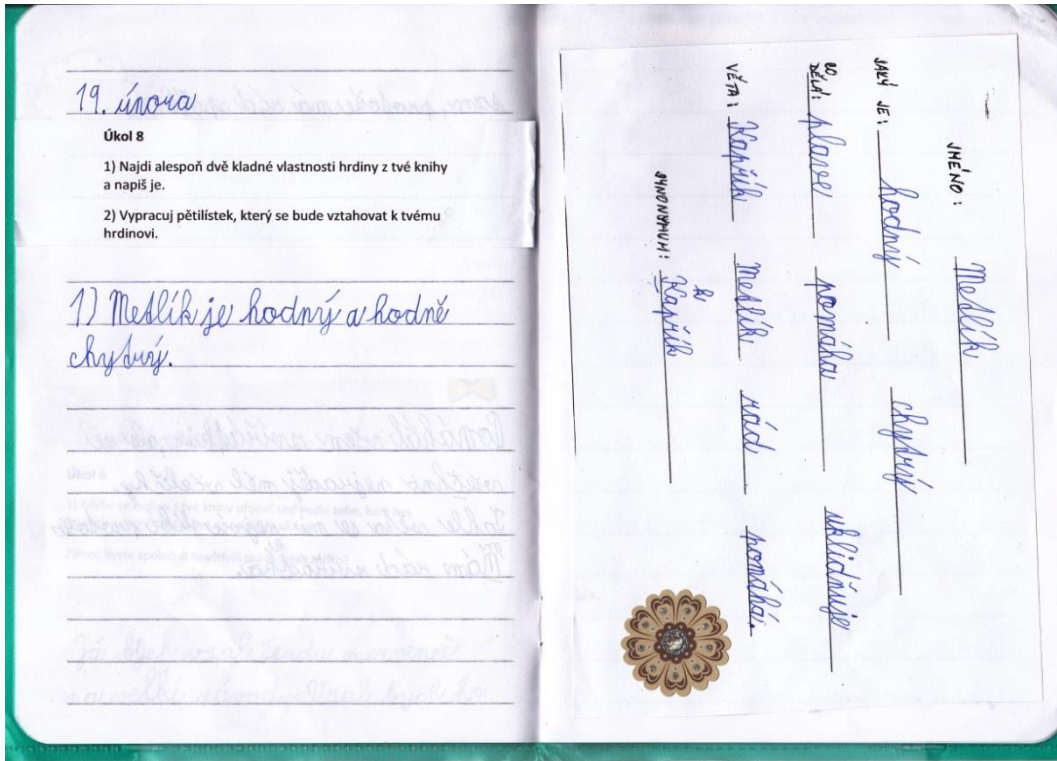 19. února
Úkol 8
1) Najdi alespoň dvě kladné vlastnosti hrdiny z tvé knihy
a napiš je.
2) Vypracuj pětilístek, který se bude vztahovat k tvému
hrdinovi.
1) Metlík je hodný a hodně
chytrý.
JMÉNO: Metlík
JAKÝ JE: hodný chytrý
CO DĚLÁ: plave pomáhá uklidňuje
VĚTA: Kapřík Metlík rád pomáhá.
SYNONYMUM: Kapřík